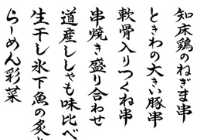 知床鶏のねぎま串
ときわの大きい豚串
軟骨入りつくね串
串焼き盛り合わせ
道産ししゃも味比べ
生干し氷下魚の炙
らーめん彩菜